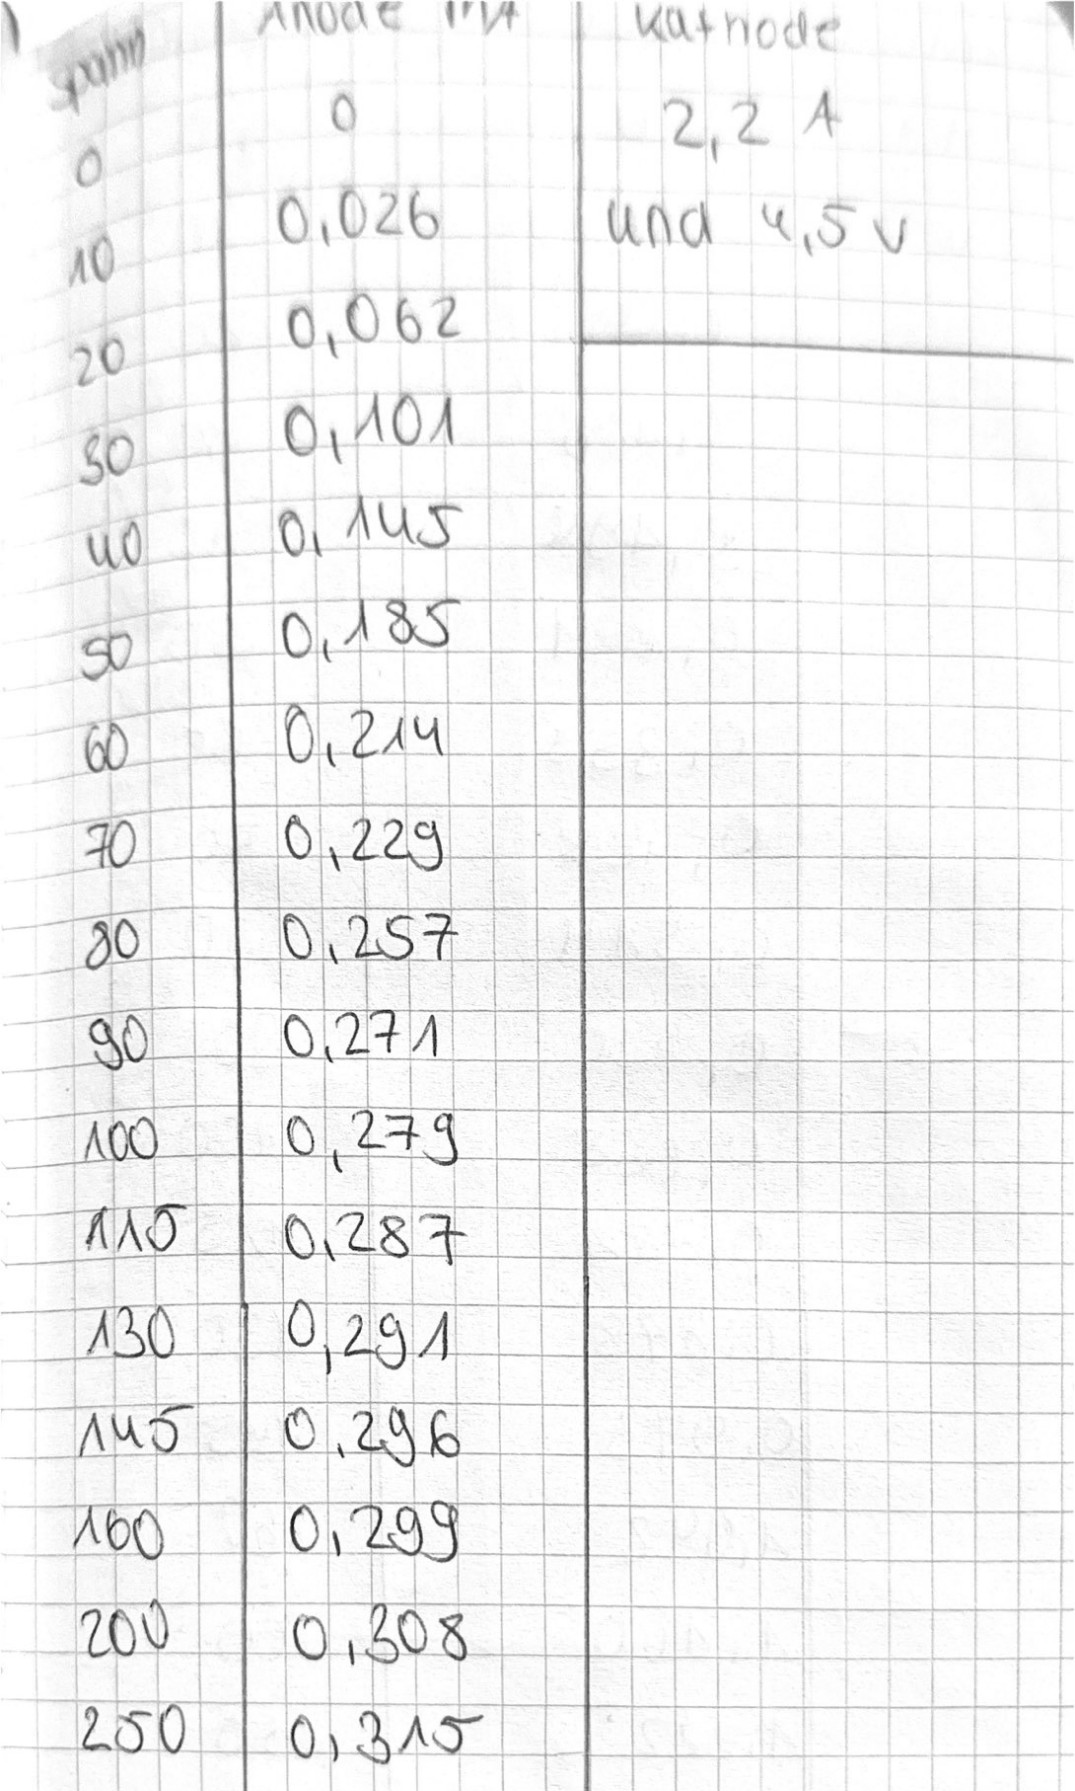 Spann Anode mA Kathode
0 0 2,2 A
10 0,026 und 4,5 V
20 0,062
30 0,101
40 0,145
50 0,185
60 0,214
70 0,229
80 0,257
90 0,271
100 0,279
115 0,287
130 0,291
145 0,296
160 0,299
200 0,308
250 0,315